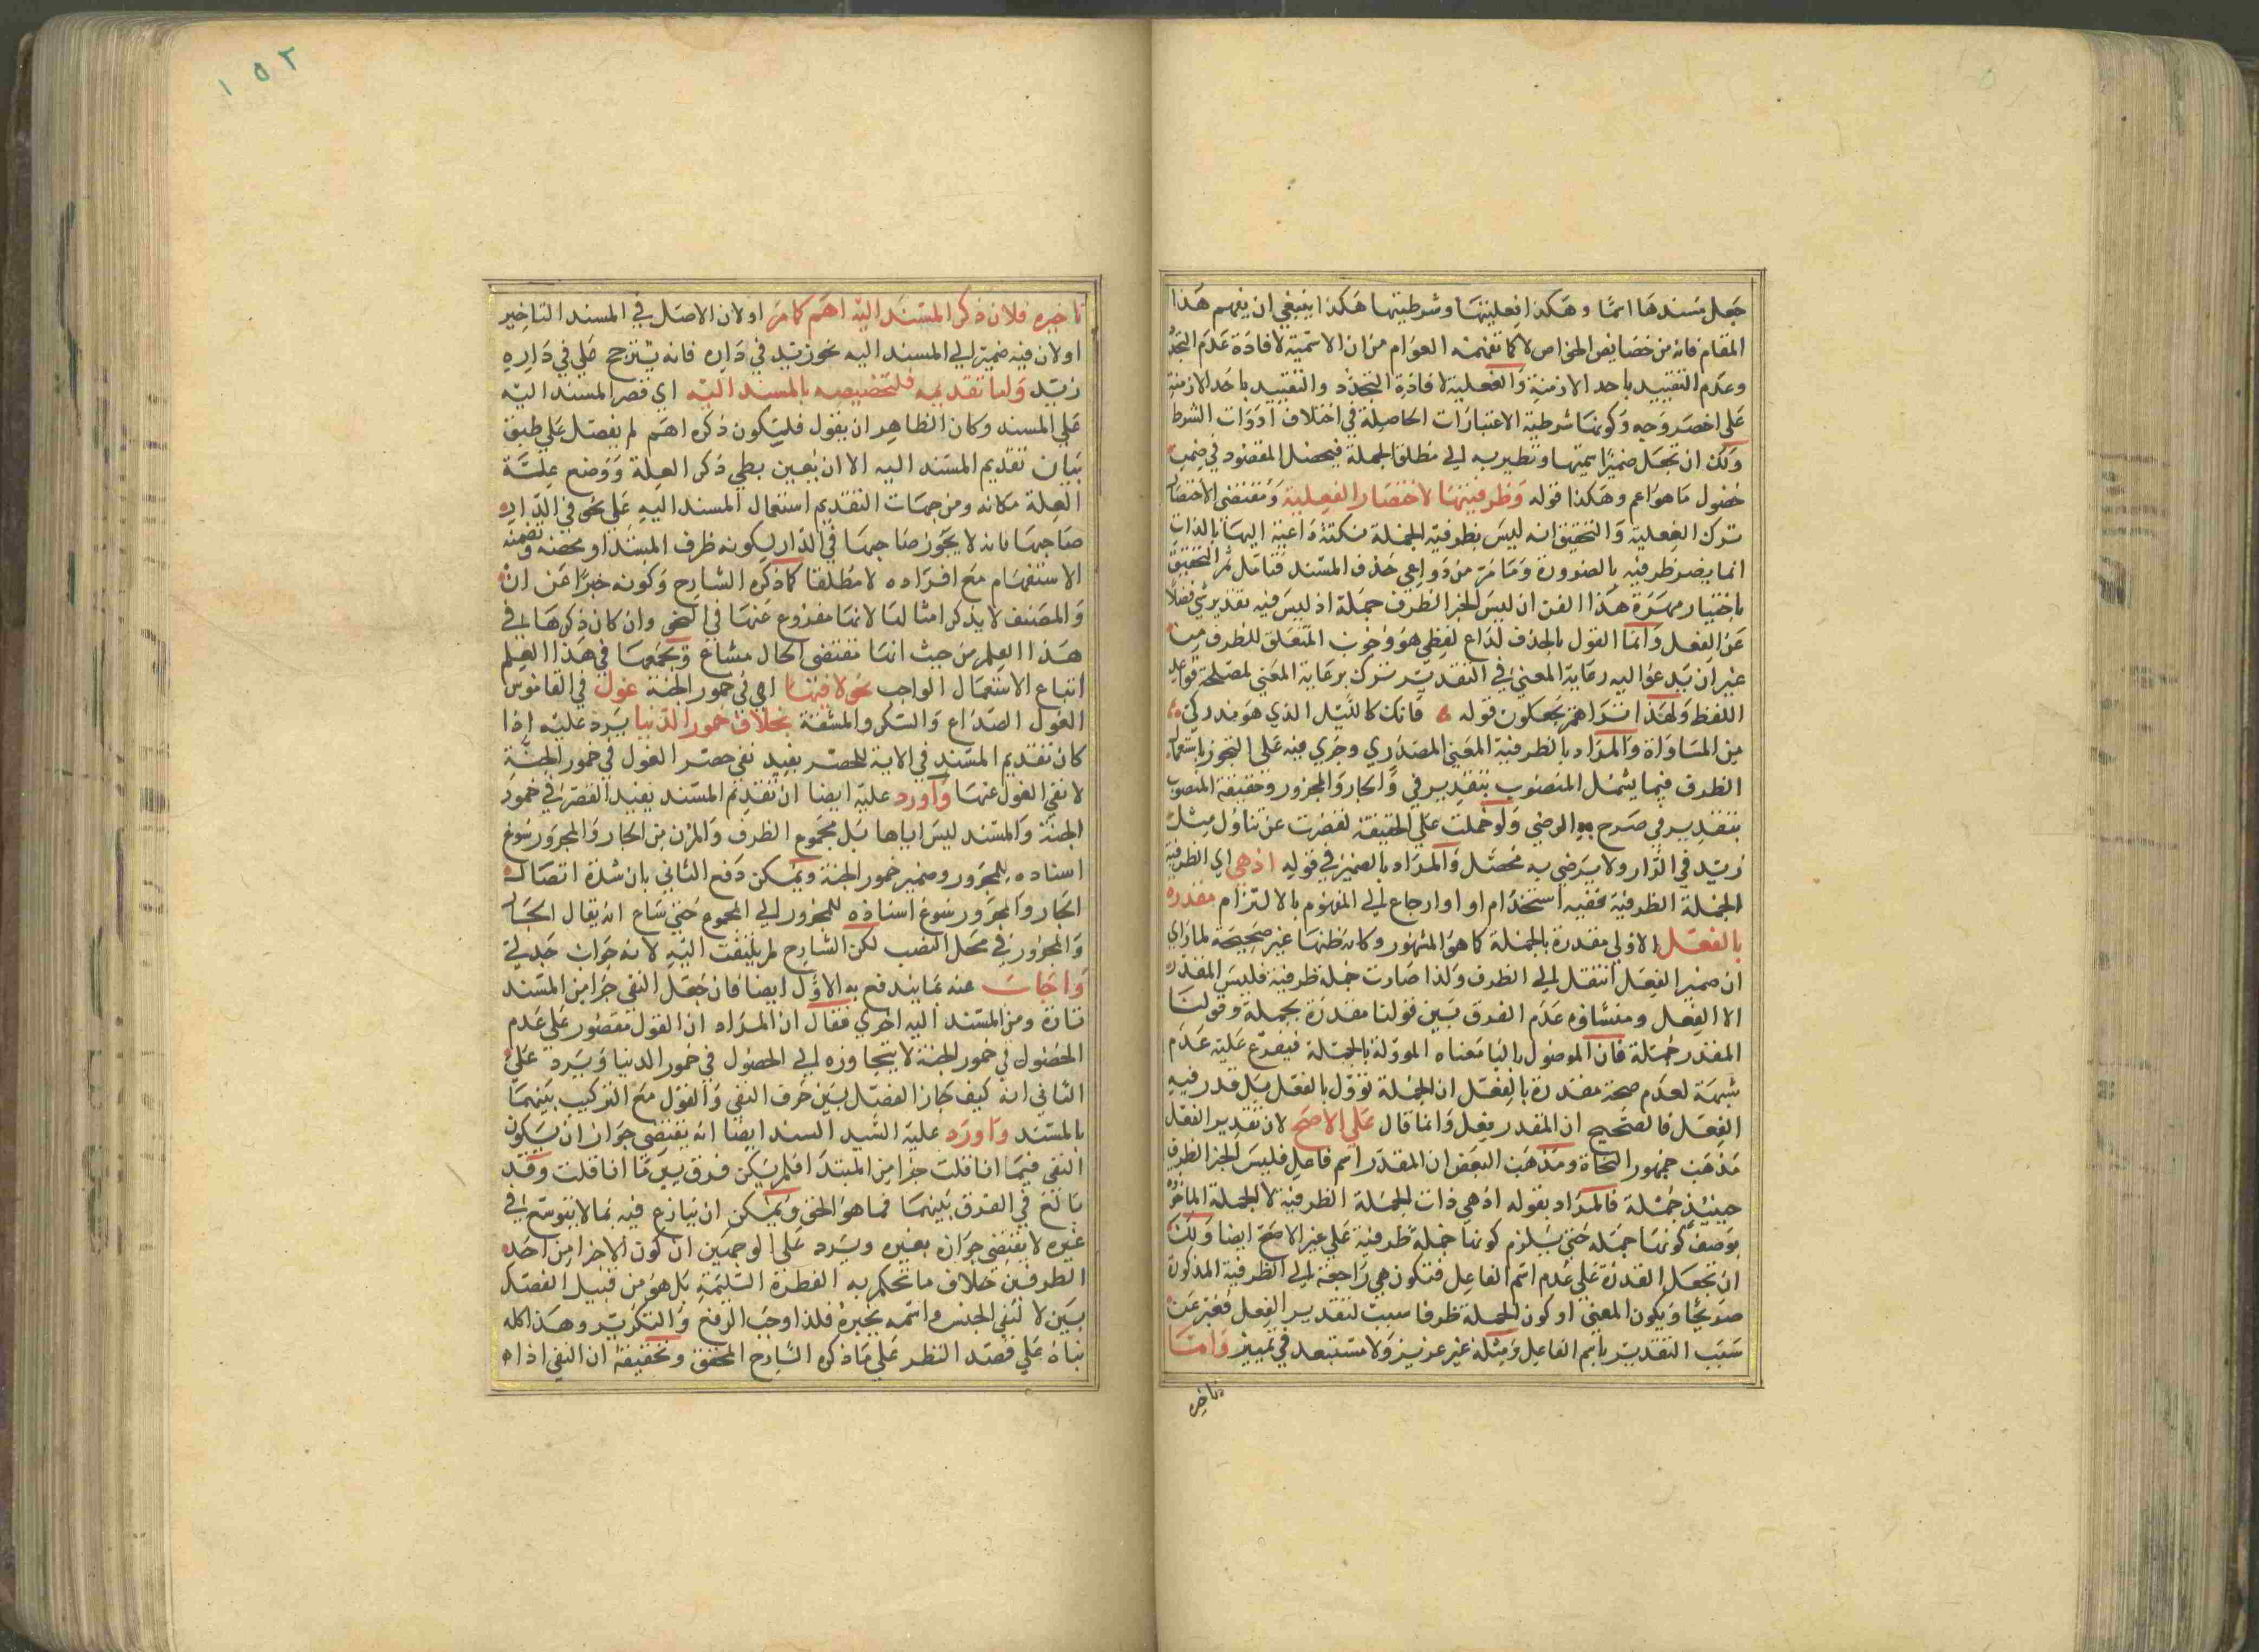 جعل مسندها اسما وهكذا فعليتها وشرطيتها هكذا ينبغي ان يفهم هذا
المقام فانه من خصايص الخواص لا كما تفهمه العوام من ان الاسمية لافادة عدم التجدد
وعدم التقييد باحد الازمنة والفعلية لافادة التجدد والتقييد باحد الازمنة
على اخصر وجه وكونها شرطية الاعتبارات الحاصلة في اختلاف ادوات الشرط
ولك ان تجعل ضمير اسميتها ونظيريه الى مطلق الجملة فيحصل المقصود في ضمن
حصول ما هو اعم وهكذا قوله وظرفيتها لاختصار الفعلية ومقتضى الاختصار
ترك الفعلية والتحقيق انه ليس بظرفية الجملة نكتة داعية اليها بالذات
انما يصر ظرفيه بالضرورة وما مر من دواعي حذف المسند فتامل ثم التحقيق
باختيار مهرة هذا الفن ان ليس الخبر الظرف جملة اذ ليس فيه تقدير شي فضلا
عن الفعل وانما القول بالحذف لداع لفظي هو وجوب المتعلق للظرف من
غير ان يدعو اليه رعاية المعنى في التقدير ترك برعاية المعنى لمصلحة قواعد
اللفظ ولهذا تراهم يجعلون قوله فانك كالليل الذي هو مدركي
من المساواة والمراد بالظرفية المعنى المصدري وجرى فيه على التجوز باستعمال
الظرف فيما يشمل المنصوب بتقدير في والجار والمجرور وحقيقة المنصوب
بتقدير في صرح به الرضي ولو حملت على الحقيقة لقصرت عن تناول مثل
زيد في الدار ولا يرضي به محصل والمراد بالضمير في قوله اذ هي اي الظرفية
الجملة الظرفية ففيه استخدام او ارجاع الى المفهوم بالالتزام مقدرة
بالفعل الاولى مقدرة بالجملة كما هو المشهور وكانه ظنها غير صحيحة لما راى
ان ضمير الفعل انتقل الى الظرف ولذا صارت جملة ظرفية فليس المقدر
الا الفعل ومنشاؤه عدم الفرق بين قولنا مقدرة بجملة وقولنا
المقدر جملة فان الموصول بالبا معناه المودلة بالجملة فيفرع عليه عدم
شبهة لعدم صحة مقدرة بالفعل ان الجملة تؤول بالفعل بل قدر فيه
الفعل فالصحيح ان المقدر فعل وانما قال على الاصح لان تقدير الفعل
مذهب جمهور النحاة ومذهب البعض ان المقدر اسم فاعل فليس الخبر الظرف
حينئذ جملة فالمراد بقوله اذ هي ذات الجملة الظرفية لا الجملة الماخوذة
بوصف كونها جملة حتى يلزم كونها جملة ظرفية على غير الاصح ايضا ولك
ان تجعل القدرة على عدم اسم الفاعل فتكون هي راجعة الى الظرفية المذكورة
صريحا ويكون المعنى او كون الجملة ظرفا سبب لتقدير الفعل فعبر عن
سبب التقدير باسم الفاعل ومثله غير عزيز ولا مستبعد في تمييز واما
تاخيره
١٥٢
تاخيره فلان ذكر المسند اليه اهم كما مر او لان الاصل في المسند التاخير
او لان فيه ضميرا الى المسند اليه نحو زيد في داره فانه يترجح على في داره
زيد واما تقديمه فلتخصيصه بالمسند اليه اي قصر المسند اليه
على المسند وكان الظاهر ان يقول فليكون ذكره اهم لم يفصل على طبق
بيان تقديم المسند اليه الا ان بطي ذكر العلة ووضع علة
العلة مكانه ومن جهات التقديم استعمال المسند اليه على نحو في الدار
صاحبها فانه لا يجوز صاحبها في الدار لكونه ظرف المبتدا ومحصنه وتضمنه
الاستفهام مع افراده لا مطلقا كما ذكره الشارح وكونه خبرا عن ان
والمصنف لا يذكر امثالها لانها مفروغ عنها في النحو وان كان ذكرها في
هذا العلم من حيث انها مقتضى الحال مشاع ويجمعها في هذا العلم
اتباع الاستعمال الواجب نحو لا فيها اي في خمور الجنة غول في القاموس
الغول الصداع والسكر والمشقة بخلاف خمور الدنيا يرد عليه اذا
كان تقديم المسند في الاية للحصر يفيد نفي حصر الغول في خمور الجنة
لا نفي الغول عنها واورد عليه ايضا ان تقديم المسند يفيد القصر في خمور
الجنة والمسند ليس اياها بل مجموع الظرف والمرن بن الجار والمجرور سوغ
اسناده للمجرور وضمير خمور الجنة ويمكن دفع الثاني بان شدة اتصال
الجار والمجرور سوغ اسناده للمجرور الى المجموع حتى شاع ان يقال الجار
والمجرور في محل النصب لكن الشارح لم يلتفت اليه لانه جواب جدلي
واجاب عنه بما يندفع به الاول ايضا فان جعل النفي جزا من المسند
تارة ومن المسند اليه اخرى فقال ان المراد ان الغول مقصور على عدم
الحصول في خمور الجنة لا يتجاوزه الى الحصول في خمور الدنيا ويرد على
الثاني انه كيف جاز الفصل بين حرف النفي والغول مع التركيب بينهما
بالمسند واورد عليه السيد السند ايضا انه يقتضي جواز ان يكون
النفي فيما انا قلت جزا من المبتدا فلم يكن فرق بين ما انا قلت وقد
بالغ في الفرق بينهما فما هو الحق ويمكن ان ينازع فيه بما لا يتوسع في
غيره لا يقتضي جوازه بغيره ويرد على الوجهين ان كون الاخر من احد
الطرفين خلاف ما تحكم به الفطرة السليمة بل هو من قبيل الفصل
بين لا لنفي الجنس واسمه بخبره فلذا وجب الرفع والتكرير وهذا كله
بناء على قصد النظر على ما ذكره الشارح المحقق وتحقيقه ان النفي اذا